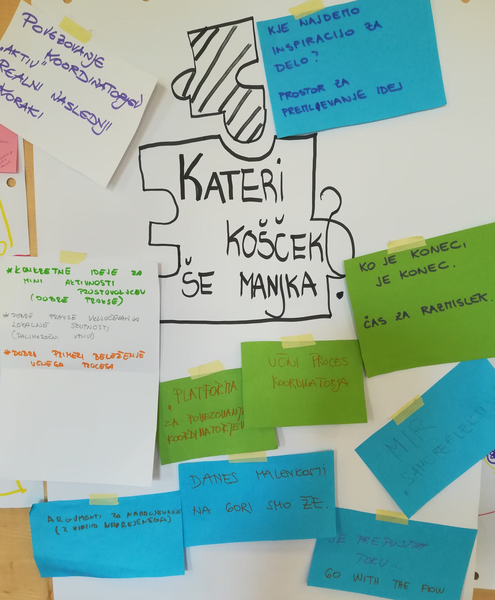 POVEZOVANJE
KOORDINATORJEV
"AKTIV"
REALNI NASLEDNJI
KORAKI
KJE NAJDEMO
INSPIRACIJO ZA
DELO?
PROSTOR ZA
PREMLJEVANJE IDEJ
KATERI
KOŠČEK
ŠE MANJKA?
* KONKRETNE IDEJE ZA
MINI AKTIVNOSTI
PROSTOVOLJCEV
(DOBRE PRAKSE)
* DOBRE PRAKSE VKLJUČEVANJA
LOKALNE SKUPNOSTI
* DOBRI PRIMERI BELEŽENJE
UČNEGA PROCESA
KO JE KONEC,
JE KONEC.
ČAS ZA RAZMISLEK.
UČNI PROCES
KOORDINATORJA
PLATFORMA
ZA POVEZOVANJE
KOORDINATORJEV
MIR
DANES MALENKOSTI
NA GORI SMO ŽE.
ARGUMENTI ZA NADALJEVANJE
SE PREPUSTIM
TOKU.
GO WITH THE FLOW